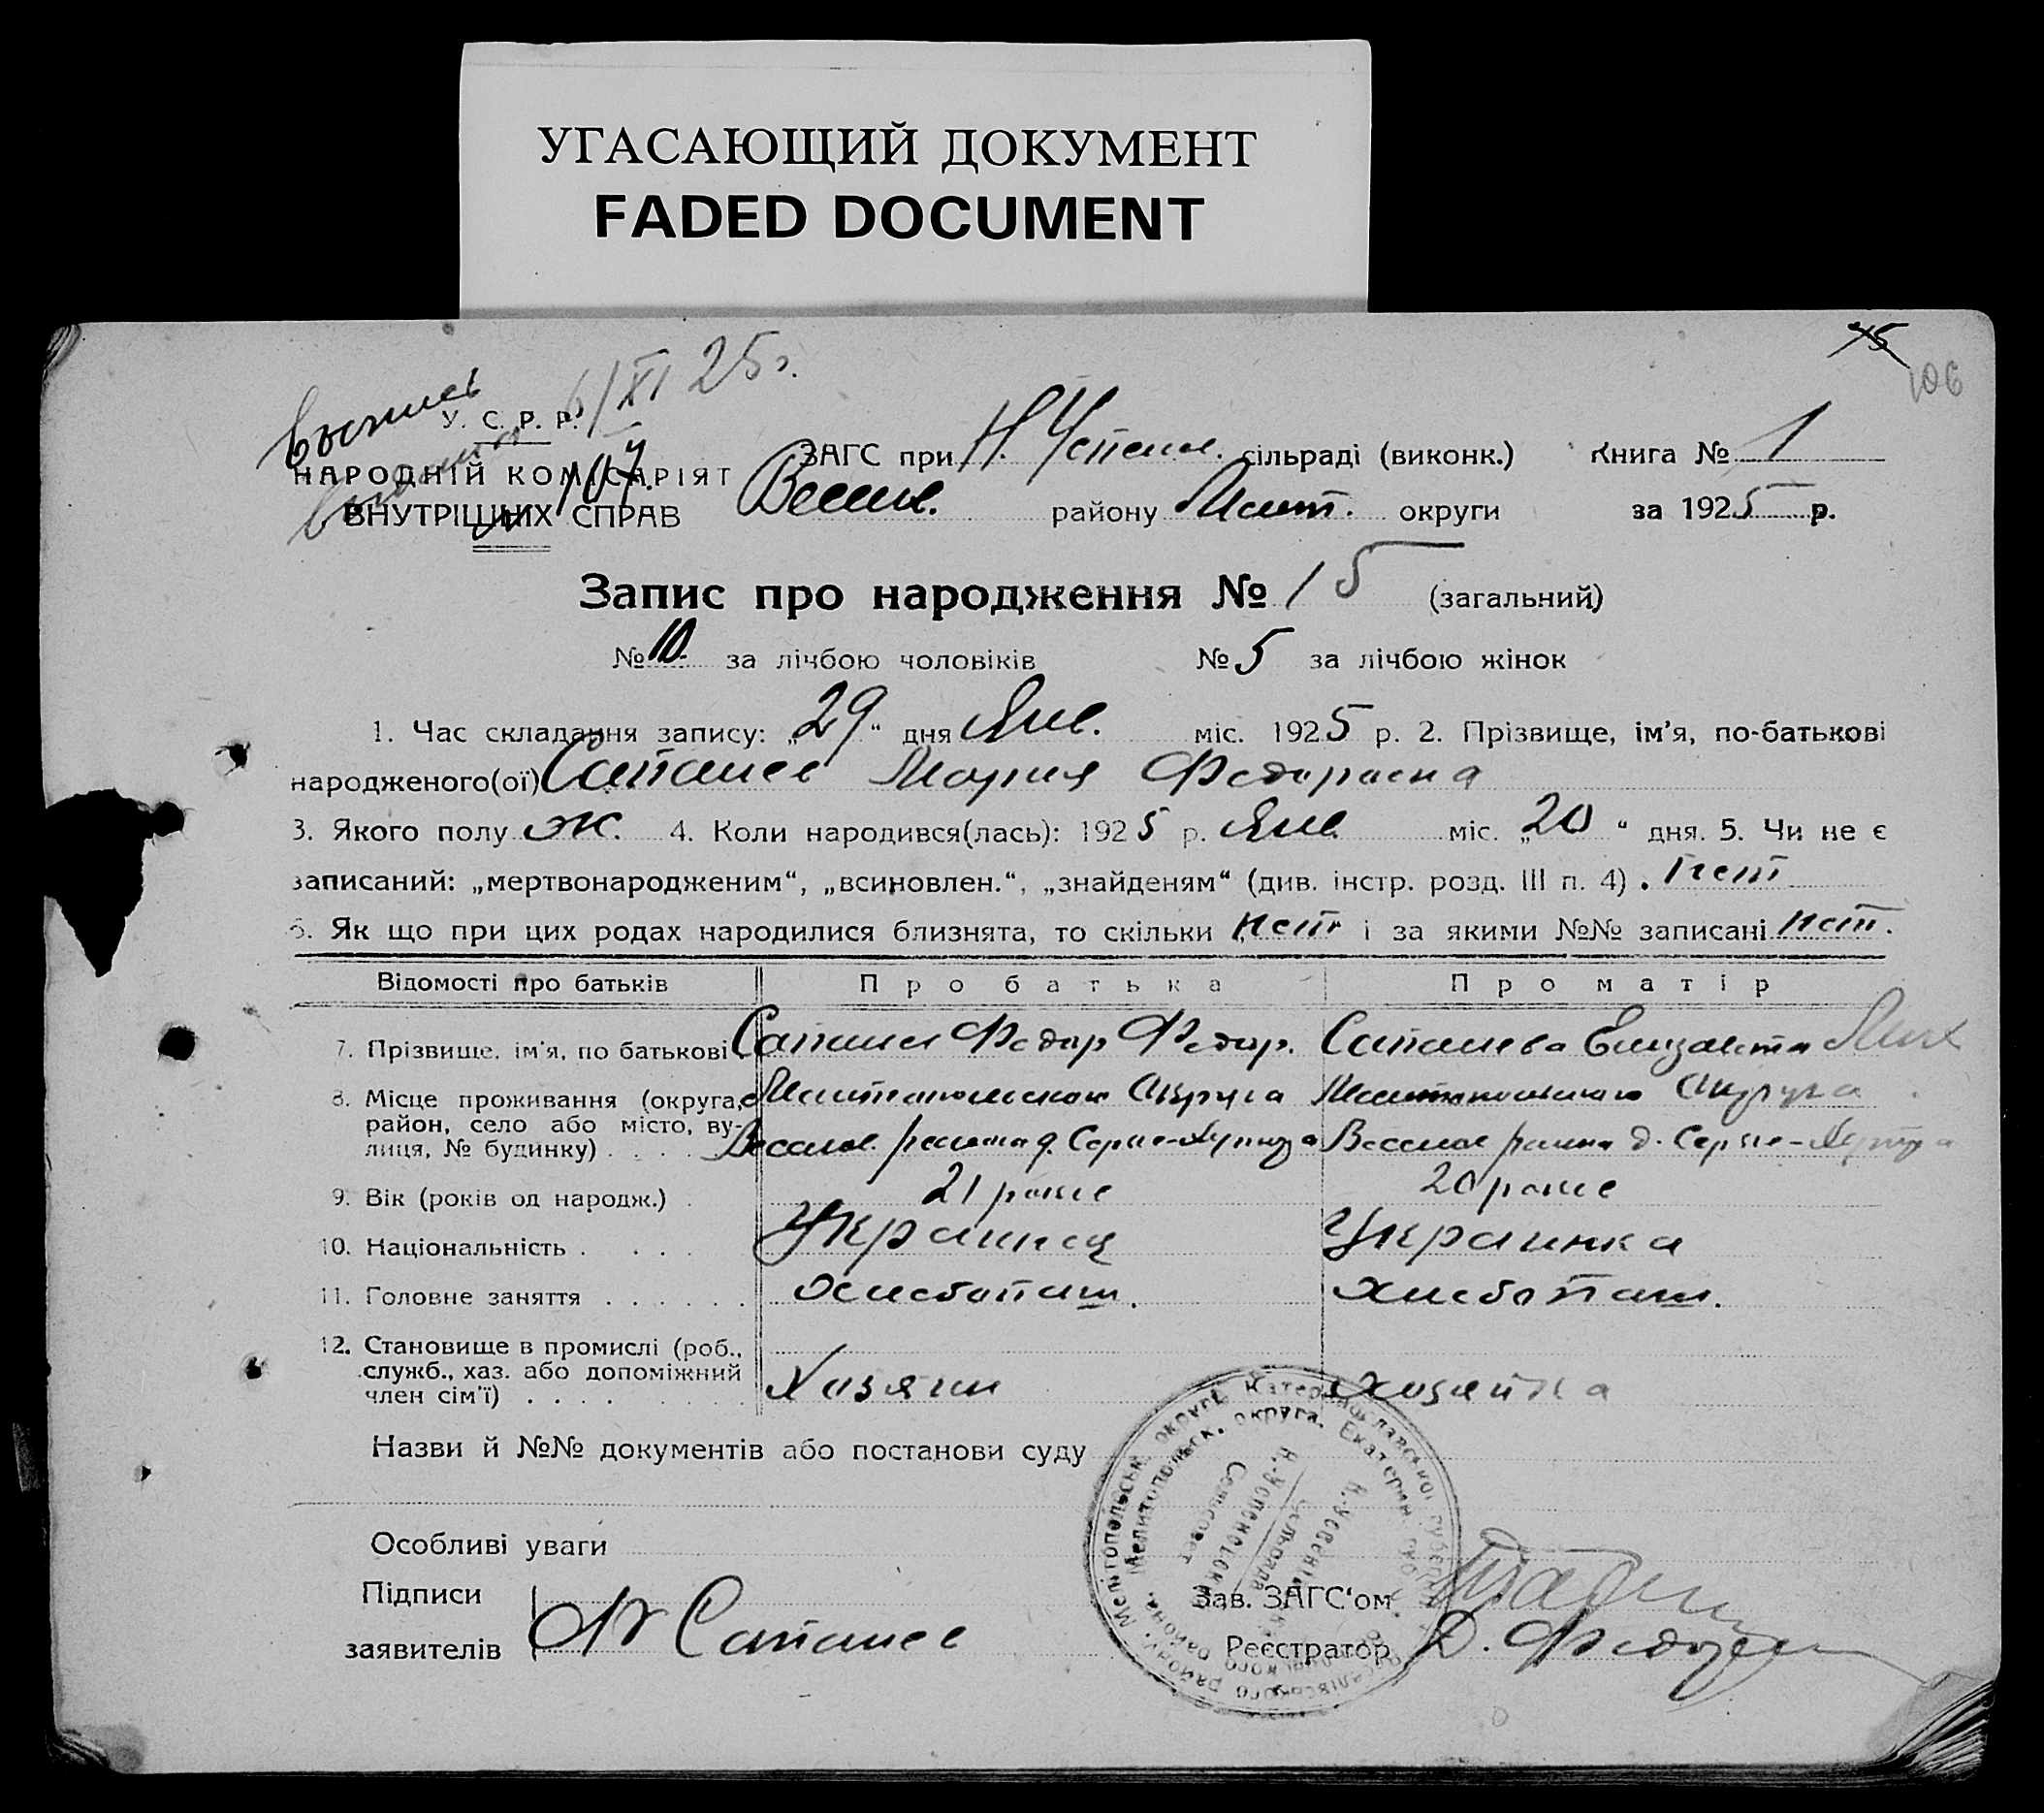 УГАСАЮЩИЙ ДОКУМЕНТ
FADED DOCUMENT
45
106
6/XI 25 г.
У. С. Р. Р.
НАРОДНІЙ КОМІСАРІЯТ
ВНУТРІШНІХ СПРАВ
107
ЗАГС при Н. Успен. сільраді (виконк.) Книга № 1
Весел. району Мелит. округи за 1925 р.
Запис про народження № 15 (загальний)
№ 10 за лічбою чоловіків № 5 за лічбою жінок
1. Час складання запису: „29“ дня Янв. міс. 1925 р. 2. Прізвище, ім'я, по-батькові
народженого(ої) Мария Федоровна
3. Якого полу ж. 4. Коли народився(лась): 1925 р. Янв. міс. „20“ дня. 5. Чи не є
записаний: „мертвонародженим“, „всиновлен.“, „знайденям“ (див. інстр. розд. III п. 4) . Нет
6. Як що при цих родах народилися близнята, то скільки нет і за якими №№ записані нет.
Відомості про батьків Про батька Про матір
7. Прізвище, ім'я, по батькові Федор Федор. Елизавета Мих
8. Місце проживання (округа, Мелитопольского Округа Мелитопольского Округа
район, село або місто, ву- Весело. района д. Весело района д.
лиця, № будинку) . . . .
9. Вік (років од народж.) . 21 20
10. Національність . . . . Украинец Украинка
11. Головне заняття . . . . . . хлебопаш. хлебопаш.
12. Становище в промислі (роб.,
служб., хаз. або допоміжний
член сім'ї) . . . . Хозяин хозяйка
Назви й №№ документів або постанови суду
Особливі уваги
Підписи
заявителів
Зав. ЗАГС'ом
Реєстратор